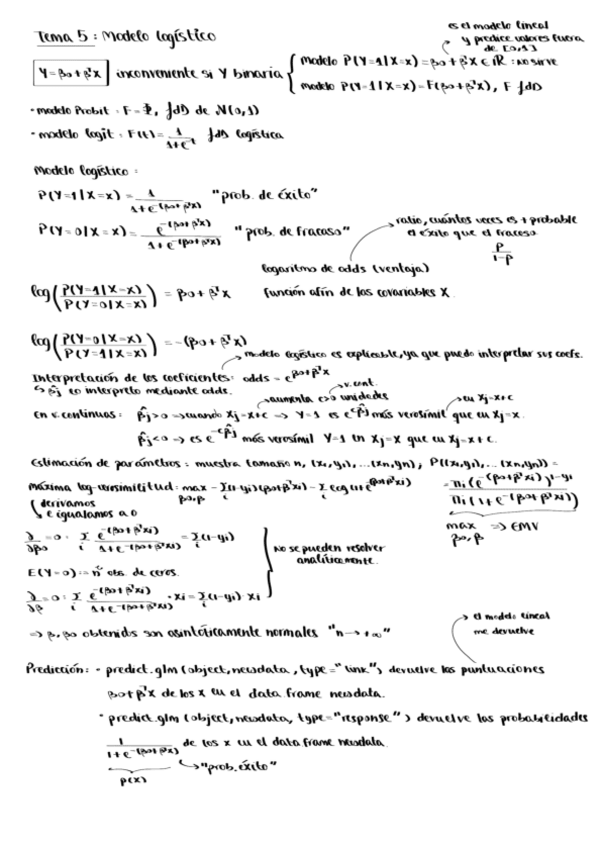 Tema 5: Modelo logístico
es el modelo lineal
y predice valores fuera
de [0,1]
Y=β0+β'X inconveniente si Y binaria
modelo P(Y=1|X=x)=β0+β'X∈ℝ: no sirve
modelo P(Y=1|X=x)=F(β0+β'x), F fdD
· modelo Probit: F=Φ, fdD de N(0,1)
· modelo logit: F(t)= 1/(1+e^-t) fdD logística
Modelo logístico:
P(Y=1|X=x) = 1/(1+e^-(β0+β'x)) "prob. de éxito"
P(Y=0|X=x) = e^-(β0+β'x)/(1+e^-(β0+β'x)) "prob. de fracaso"
ratio, cuántas veces es + probable
el éxito que el fracaso
p/(1-p)
logaritmo de odds (ventaja)
log(P(Y=1|X=x)/P(Y=0|X=x)) = β0+β'x función afín de las covariables X.
log(P(Y=0|X=x)/P(Y=1|X=x)) = -(β0+β'x)
modelo logístico es explicable, ya que puedo interpretar sus coefs.
Interpretación de los coeficientes: odds = e^β0+β'x
β̂j lo interpreto mediante odds.
v.cont.
aumenta c>0 unidades
en Xj=x+c
En v. continuas: β̂j>0 → cuando Xj=x+c → Y=1 es e^cβ̂j más verosímil que en Xj=x.
β̂j<0 → es e^-cβ̂j más verosímil Y=1 en Xj=x que en Xj=x+c.
Estimación de parámetros: muestra tamaño n, (x1,y1),...(xn,yn); P((x1,y1),...(xn,yn)) =
máxima log-verosimilitud: max - Σ(1-yi)(β0+β'xi) - Σ log(1+e^-(β0+β'xi))
β0,β i i
= Πi(e^-(β0+β'xi))^1-yi / Πi(1+e^-(β0+β'xi))
derivamos
e igualamos a 0
max => EMV
β0,β
∂/∂β0 = 0: Σi e^-(β0+β'xi)/(1+e^-(β0+β'xi)) = Σi(1-yi)
No se pueden resolver
analíticamente.
E(Y=0):= nº obs. de ceros.
∂/∂β = 0: Σi e^-(β0+β'xi)/(1+e^-(β0+β'xi)) · xi = Σi(1-yi) · xi
=> β, β0 obtenidos son asintóticamente normales "n→+∞"
el modelo lineal
me devuelve
Predicción: · predict.glm (object, newdata, type="link") devuelve las puntuaciones
β0+β'x de los x en el data frame newdata.
· predict.glm (object, newdata, type="response") devuelve las probabilidades
1/(1+e^-(β0+β'x)) de los x en el data frame newdata.
"prob. éxito"
p(x)